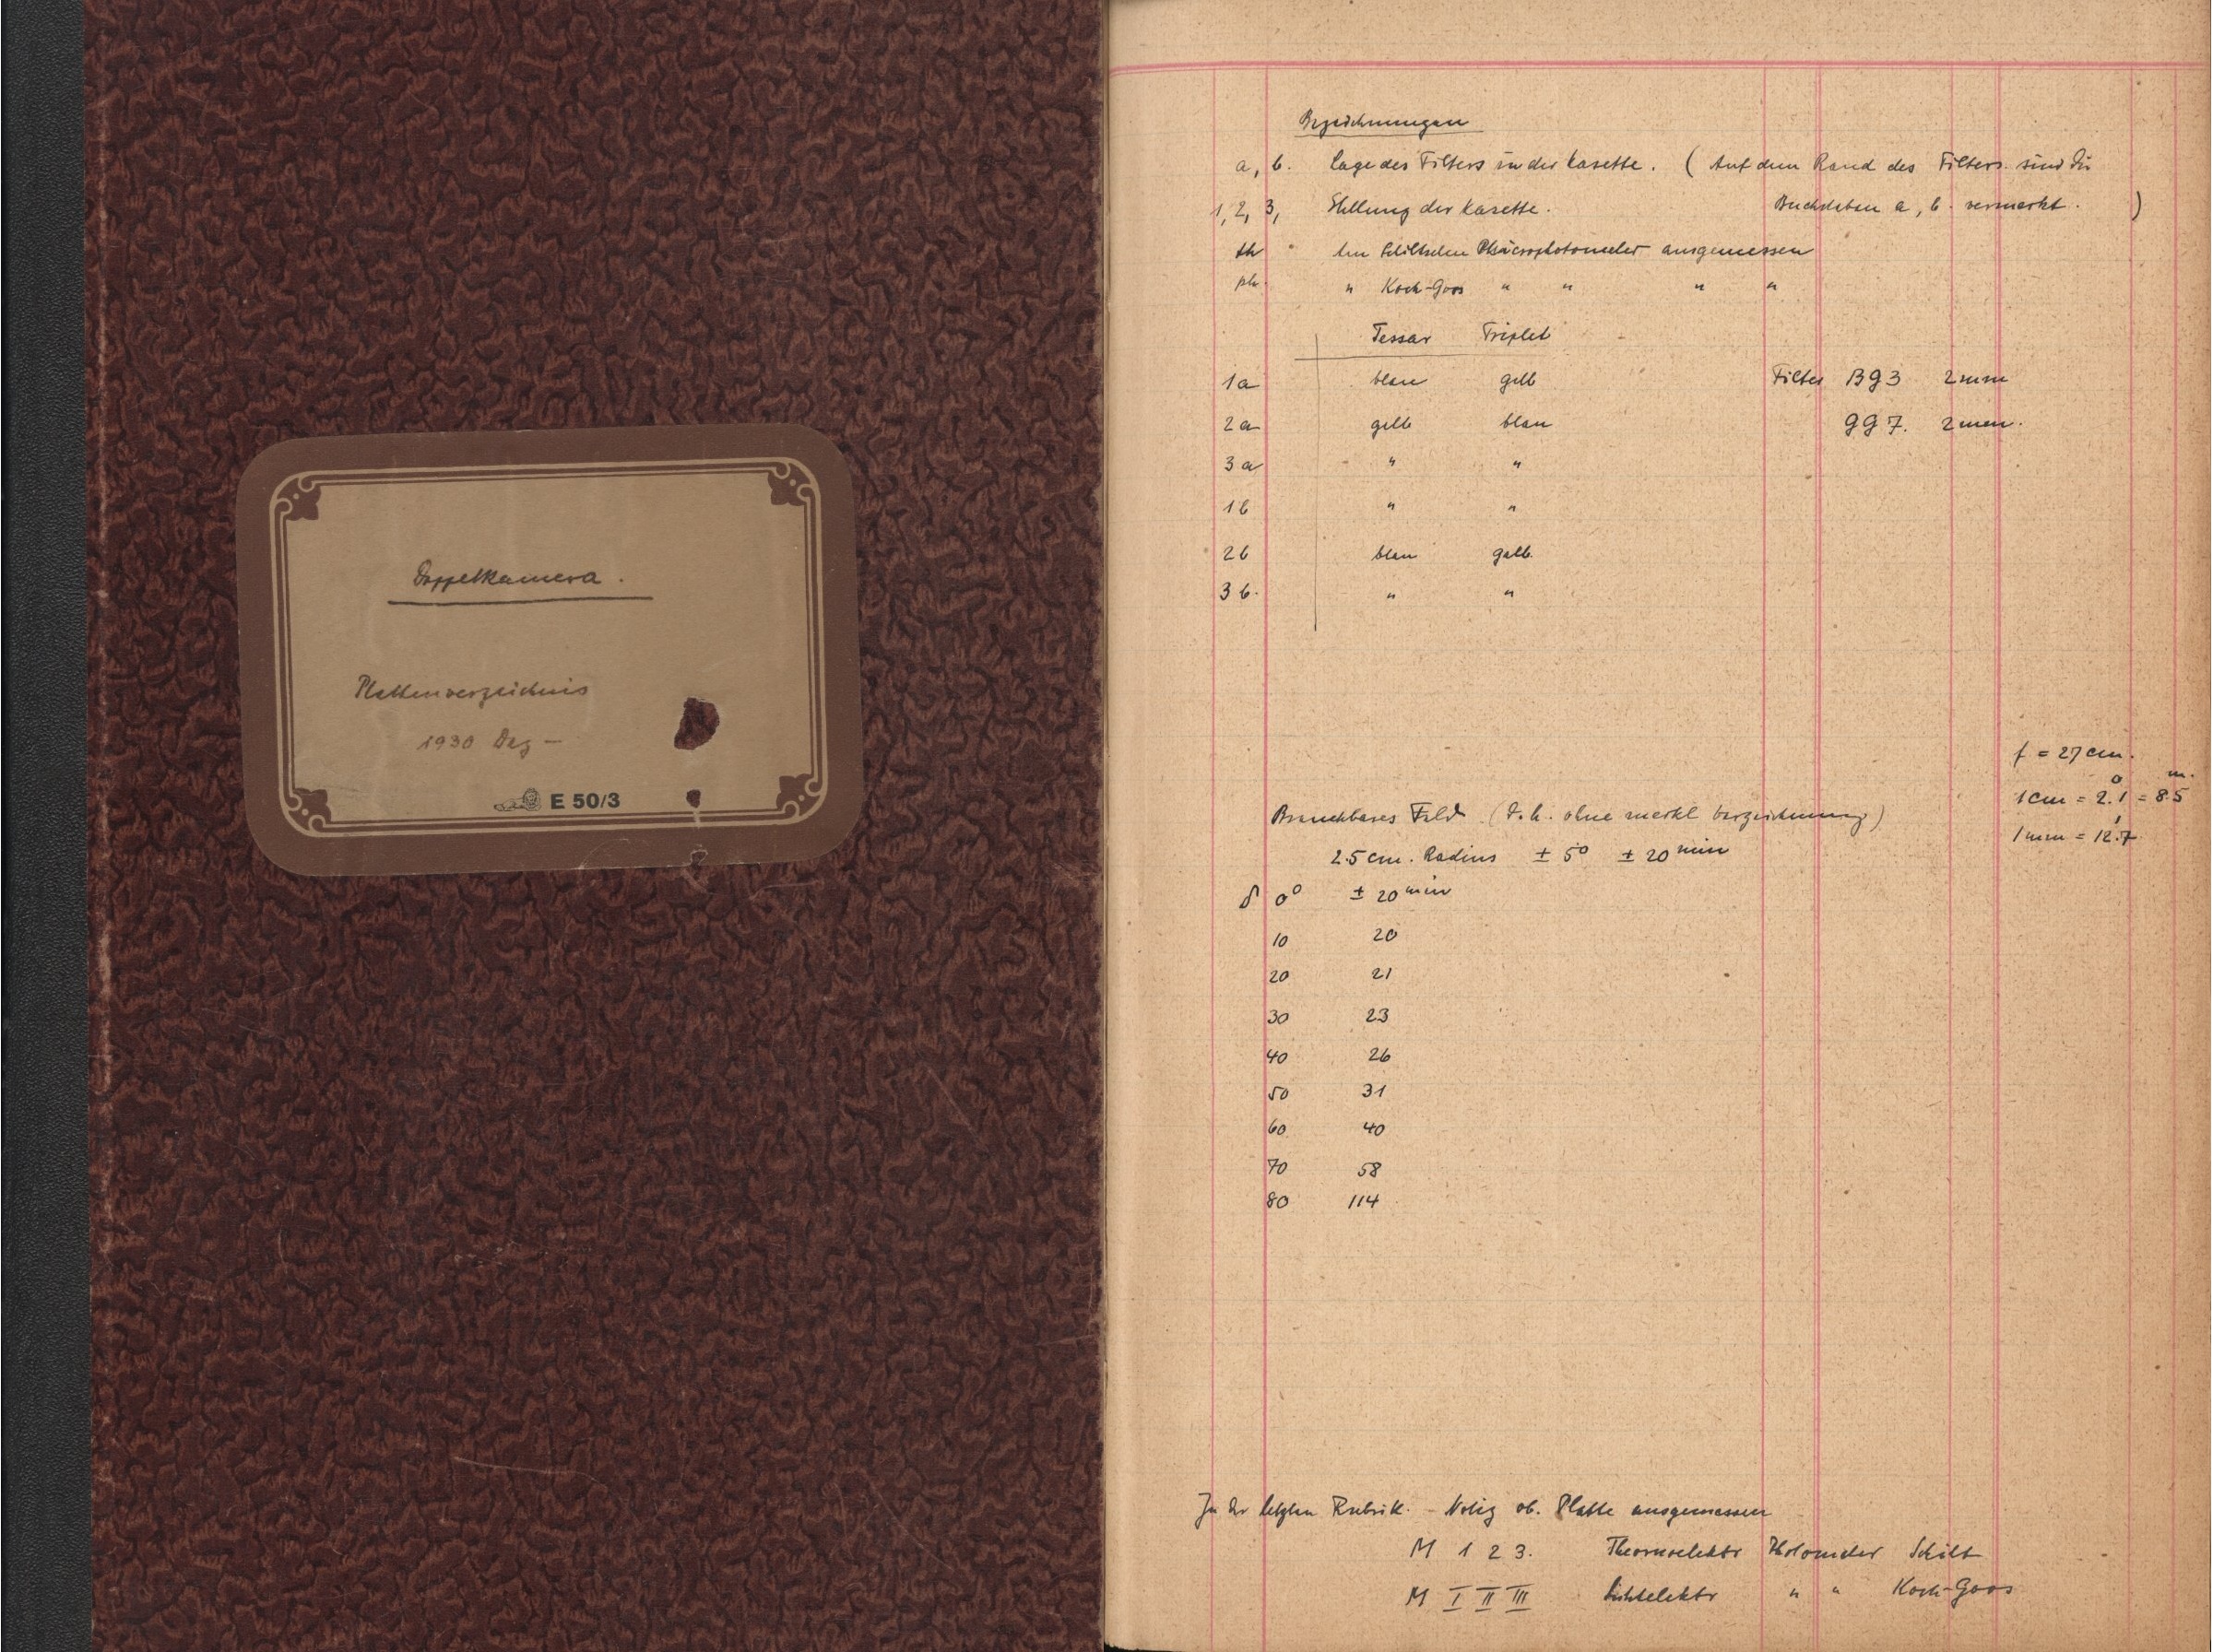 Doppelkamera.
Plattenverzeichnis
1930 Dez –
E 50/3
Bezeichnungen
a, b. Lage des Filters in der Kasette. ( Auf dem Rand des Filters sind die
1, 2, 3, Stellung der Kasette. Buchstaben a, b. vermerkt. )
th Am Schiltschen ausgemessen
ph. " Koch-Goos " " " "
Tessar Triplet
1a blau gelb Filter BG3 2mm
2a gelb blau GG7. 2mm.
3a " "
1b " "
2b blau gelb.
3b. " "
f = 27cm.
1cm = 2°.1 = 8.5 m.
1mm = 12'.7
Brauchbares Feld (d.h. ohne merkl Verzeichnung)
2.5cm. Radius ± 5° ± 20 min
δ 0° ± 20 min
10 20
20 21
30 23
40 26
50 31
60 40
70 58
80 114
In der letzten Rubrik. Notiz ob. Platte ausgemessen
M 1 2 3. Thermoelektr Photometer Schilt
M I II III lichtelektr " " Koch-Goos